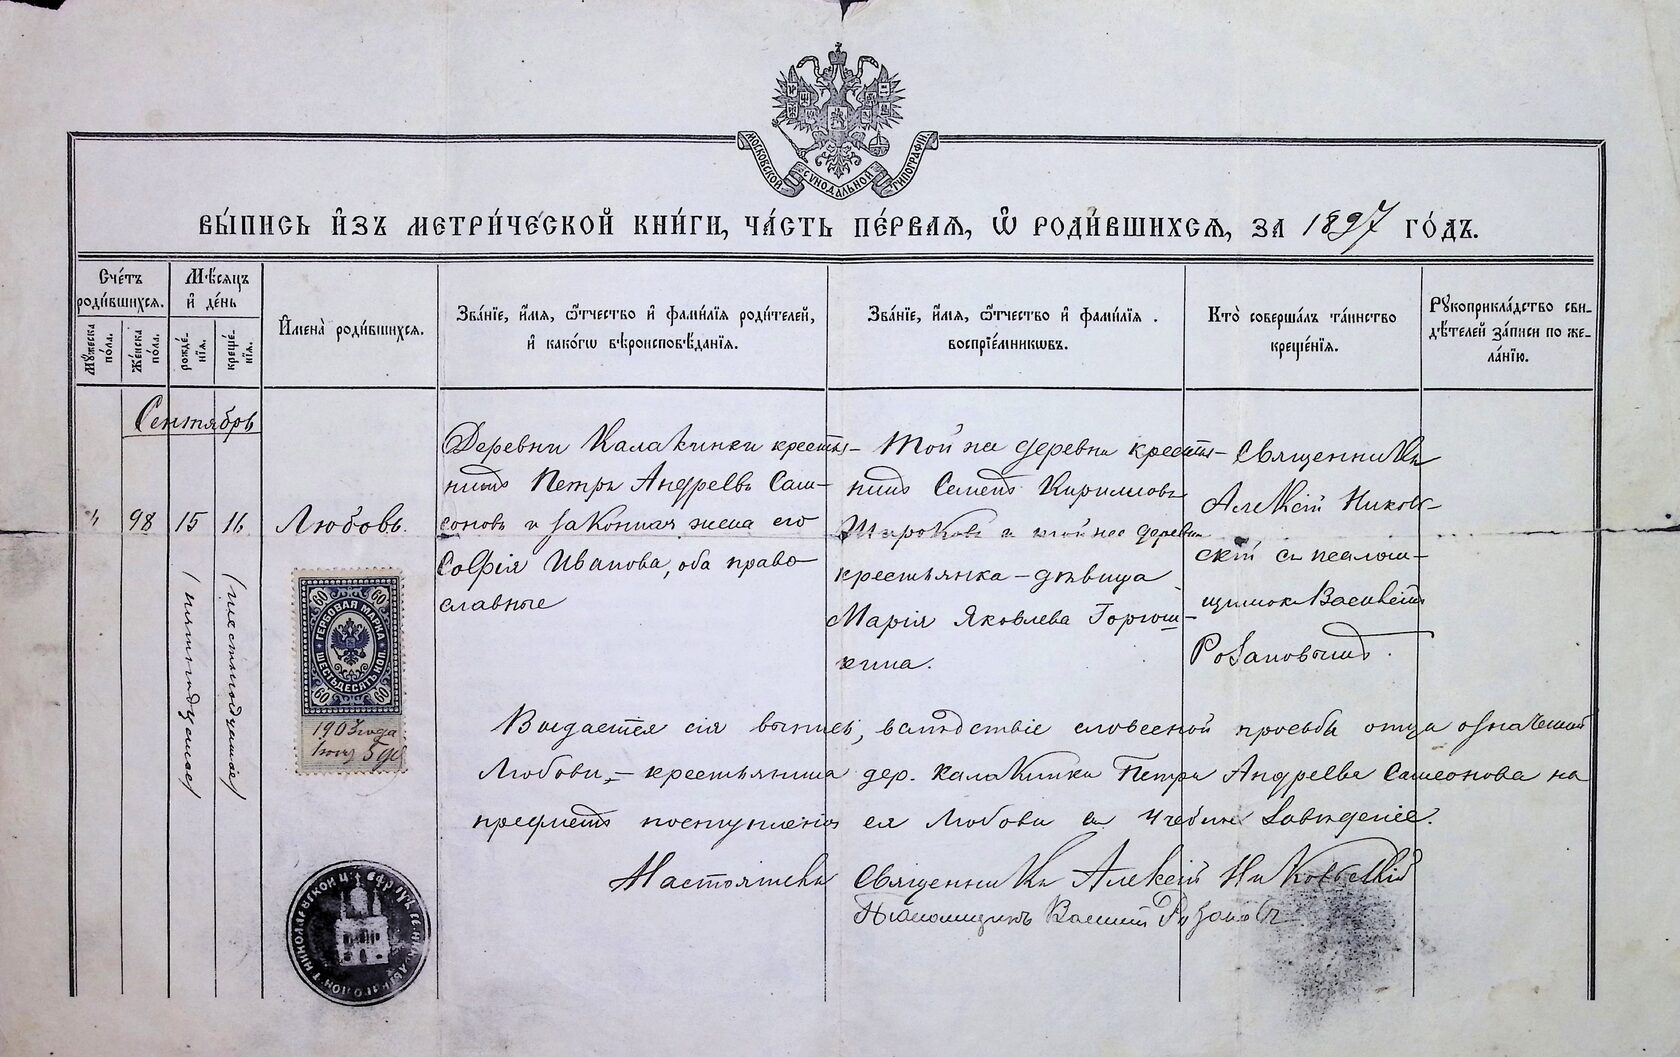 МОСКОВСКОЙ СѴНОДАЛЬНОЙ ТИПОГРАФІИ.
ВЫ́ПИСЬ И҆́ЗЪ МЕТРИ́ЧЕСКОЙ КНИ́ГИ, ЧА́СТЬ ПЕ́РВАѦ, Ѿ РОДИ́ВШИХСѦ, ЗА 1897 ГО́ДЪ.
Сче́тъ роди́вшихсѧ.
Мꙋ́жеска по́ла.
Же́нска по́ла.
Мѣ́сѧцъ и҆ де́нь
рожде́нїѧ.
креще́нїѧ.
И҆мена̀ роди́вшихсѧ.
Зва́нїе, и҆́мѧ, ѻ҆́тчество и҆ фами́лїѧ роди́телей,
и҆ како́гѡ вѣроисповѣ́данїѧ.
Зва́нїе, и҆́мѧ, ѻ҆́тчество и҆ фами́лїѧ
воспрїе́мникѡвъ.
Кто̀ соверша́лъ та́инство
креще́нїѧ.
Рꙋкоприкла́дство сви-
дѣ́телей за́писи по же-
ла́нїю.
Сентябрь
" 98 15 16
(пятнадцатое)
(шестнадцатое)
Любовь.
Деревни Калакинки крестья-
нинъ Петръ Андреевъ Сам-
соновъ и законная жена его
Софія Иванова, оба право-
славные
Той же деревни крестья-
нинъ Семенъ Кирилловъ
Широковъ и той же деревни
крестьянка - дѣвица
Марія Яковлева Горюш-
кина.
Священникъ
Алексій Николь-
скій съ псалом-
щикомъ Василіемъ
Розановымъ.
60 60
ГЕРБОВАЯ МАРКА
ШЕСТЬДЕСЯТЪ КОП.
60 60
1907 года
Іюня 5 дня
Выдается сія выпись, вслѣдствіе словесной просьбы отца означенной
Любови, - крестьянина дер. Калакинки Петра Андреева Самсонова на
предметъ поступленія ея Любови въ учебное заведеніе.
Настоятель Священникъ Алексій Никольскій
Псаломщикъ Василій Розановъ